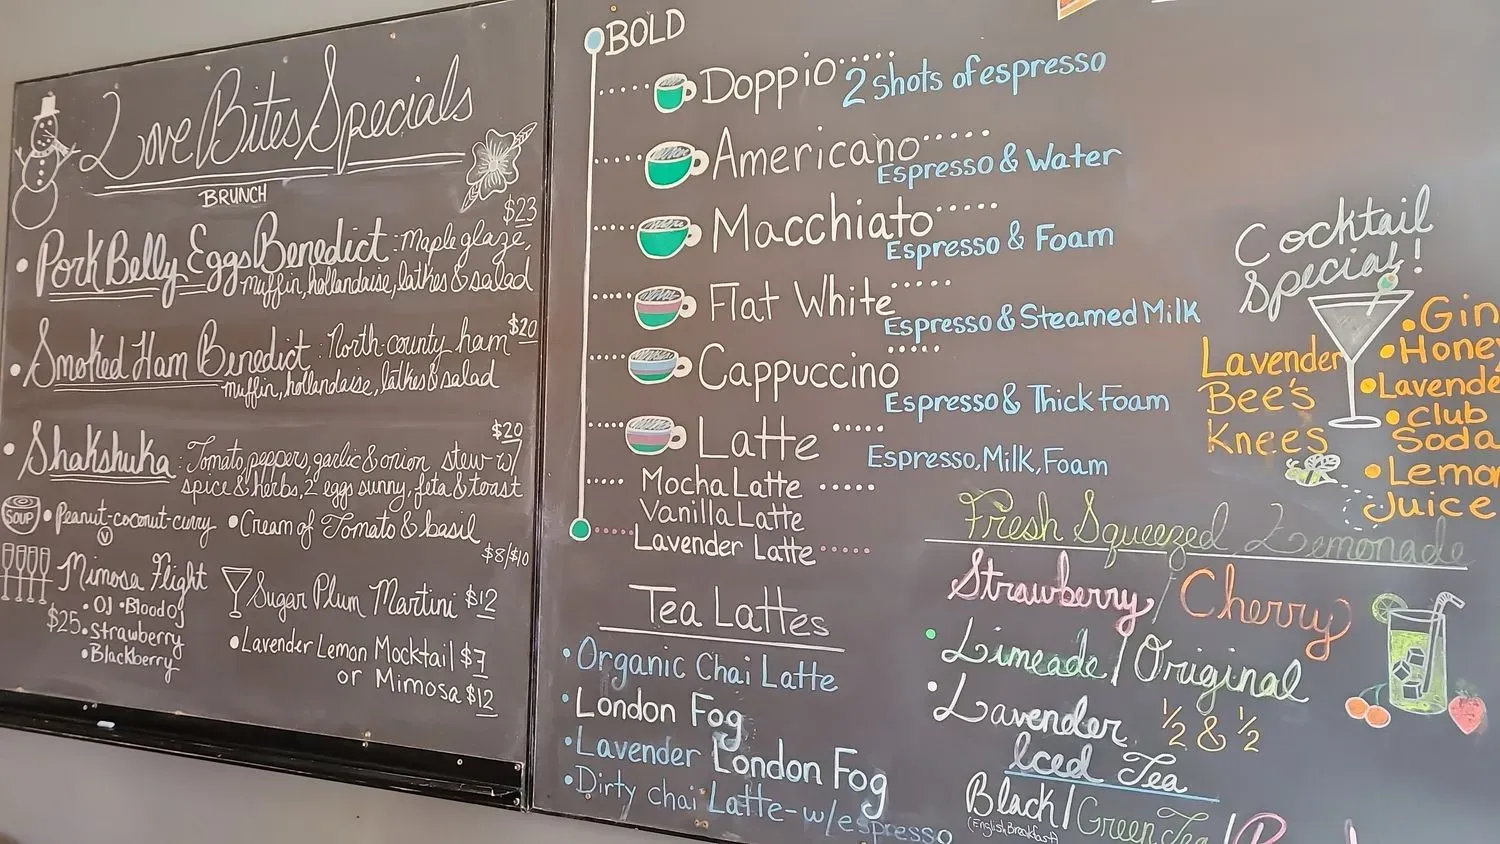 Love Bites Specials
BRUNCH
$23
• Pork Belly Eggs Benedict: Maple glaze,
muffin, hollandaise, latkes & salad
$20
• Smoked Ham Benedict: North county ham
muffin, hollandaise, latkes & salad
$20
• Shakshuka: Tomato, peppers, garlic & onion stew w/
spice & herbs, 2 eggs sunny, feta & toast
SOUP • Peanut-coconut-curry • Cream of Tomato & basil
V
$8/$10
Mimosa Flight
• OJ • Blood OJ
$25 • Strawberry
• Blackberry
Sugar Plum Martini $12
• Lavender Lemon Mocktail $7
or Mimosa $12
BOLD
Doppio..... 2 shots of espresso
Americano..... Espresso & Water
Macchiato..... Espresso & Foam
Flat White..... Espresso & Steamed Milk
Cappuccino..... Espresso & Thick Foam
Latte..... Espresso, Milk, Foam
Mocha Latte.....
Vanilla Latte
Lavender Latte.....
Tea Lattes
• Organic Chai Latte
• London Fog
• Lavender London Fog
• Dirty chai Latte - w/espresso
Cocktail
Special!
Lavender
Bee's
Knees
• Gin
• Honey
• Lavende
• Club
Soda
• Lemon
Juice
Fresh Squeezed Lemonade
Strawberry / Cherry
• Limeade / Original
• Lavender ½ & ½
Iced Tea
Black / Green Tea /
(English Breakfast)